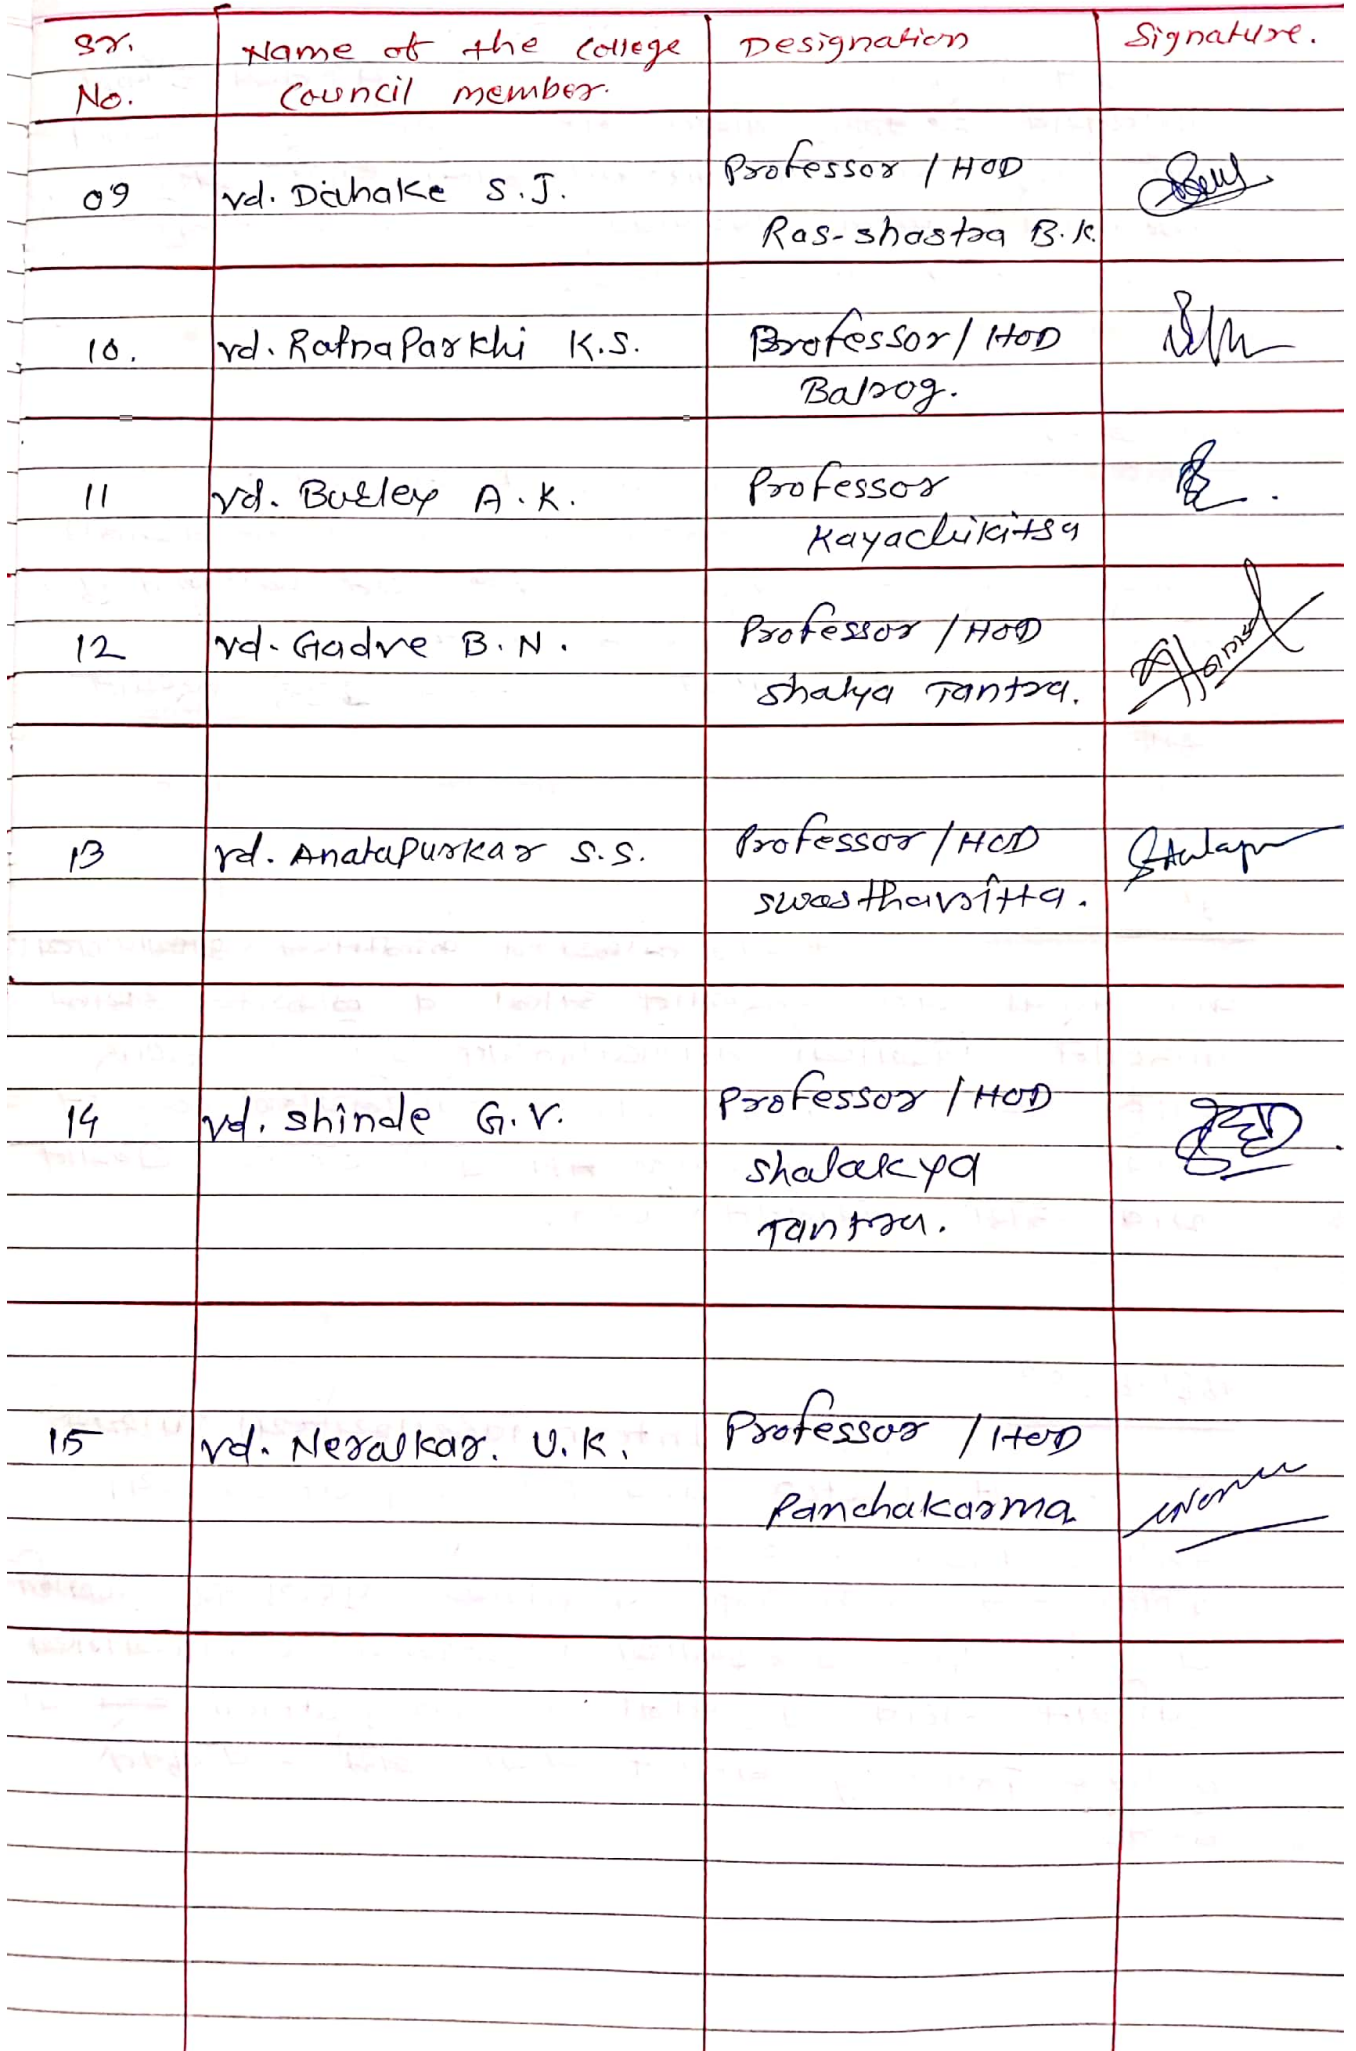 Sr. Name of the College Designation Signature.
No. Council member.
09 vd. Dahake S.J. Professor / HOD
Ras-shastra B.K.
10. vd. RatnaParkhi K.S. Professor / HOD
Balrog.
11 vd. A.K. Professor
Kayachikitsa
12 vd. Gadre B.N. Professor / HOD
shalya Tantra.
13 vd. AnataPurkar S.S. Professor / HOD
swasthavritta.
14 vd. shinde G.V. Professor / HOD
shalakya
Tantra.
15 vd. Neralkar. U.K. Professor / HOD
Panchakarma